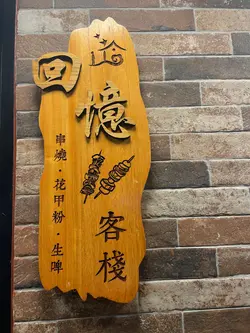 回憶客棧
串燒·花甲粉·生啤